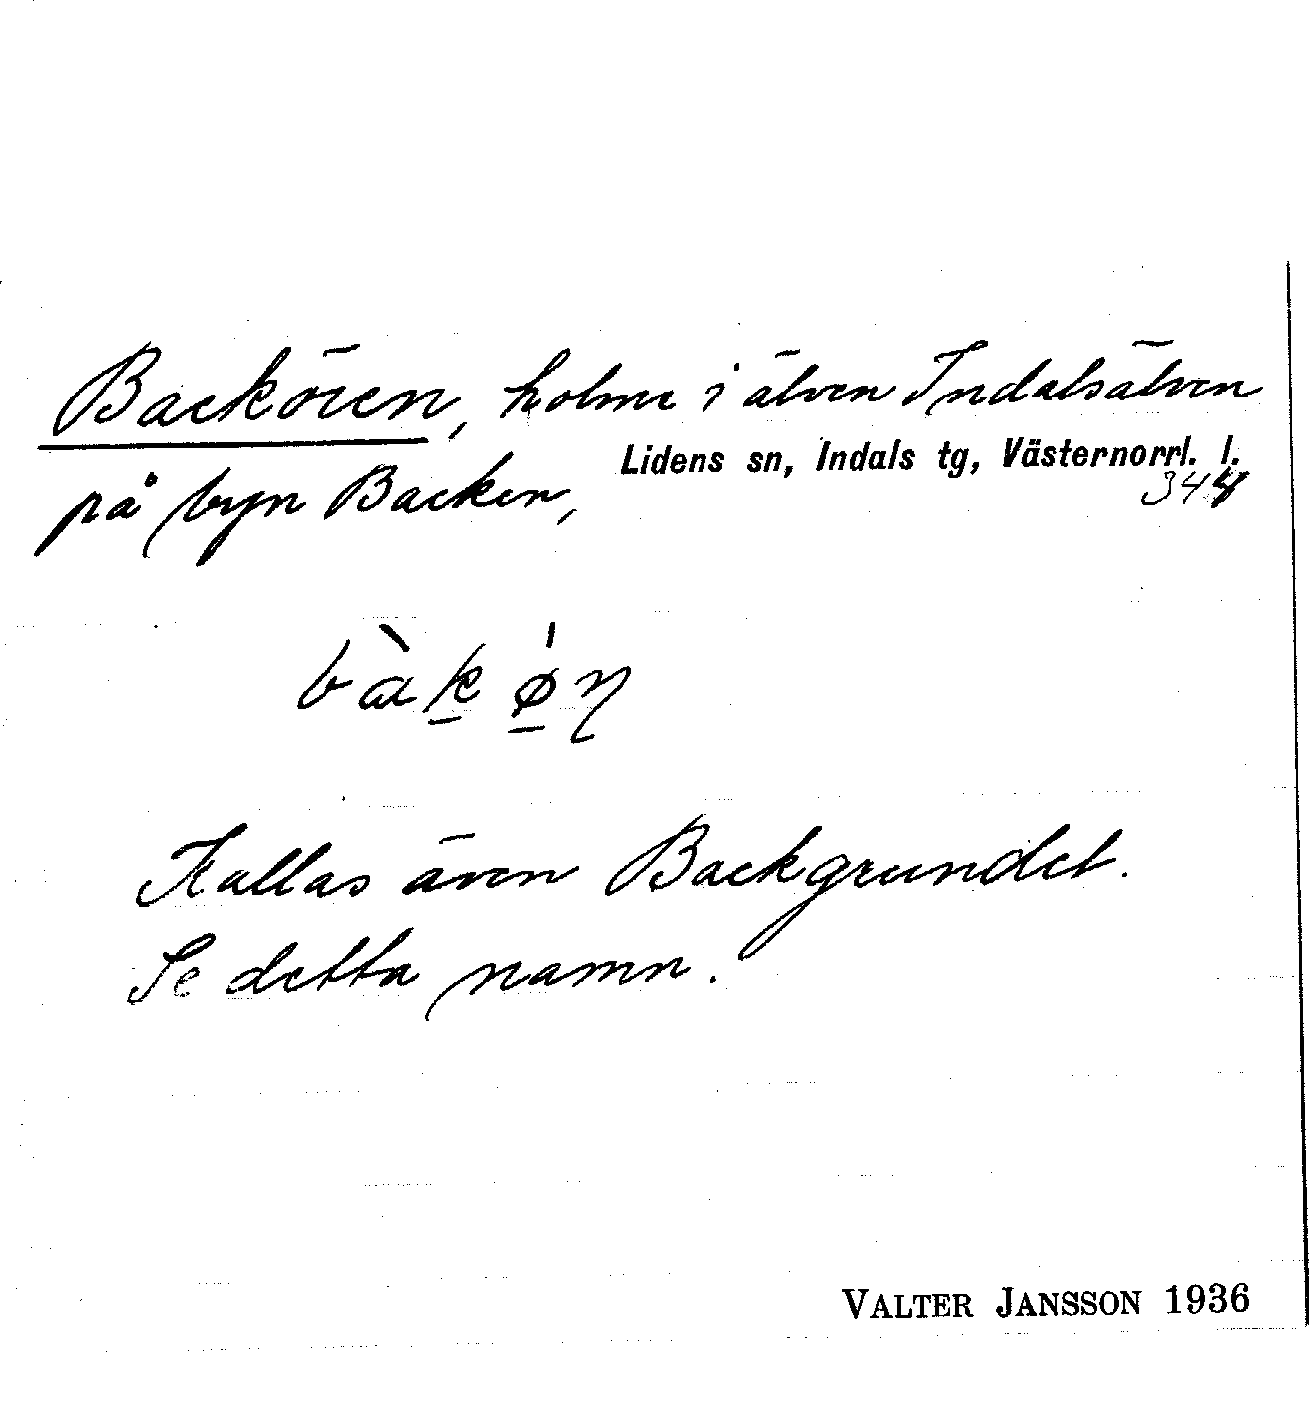 Backören, holme i älven Indalsälven
Lidens sn, Indals tg, Västernorrl. l.
344
på byn Backen,
Kallas även Backgrundet.
Se detta namn.
VALTER JANSSON 1936